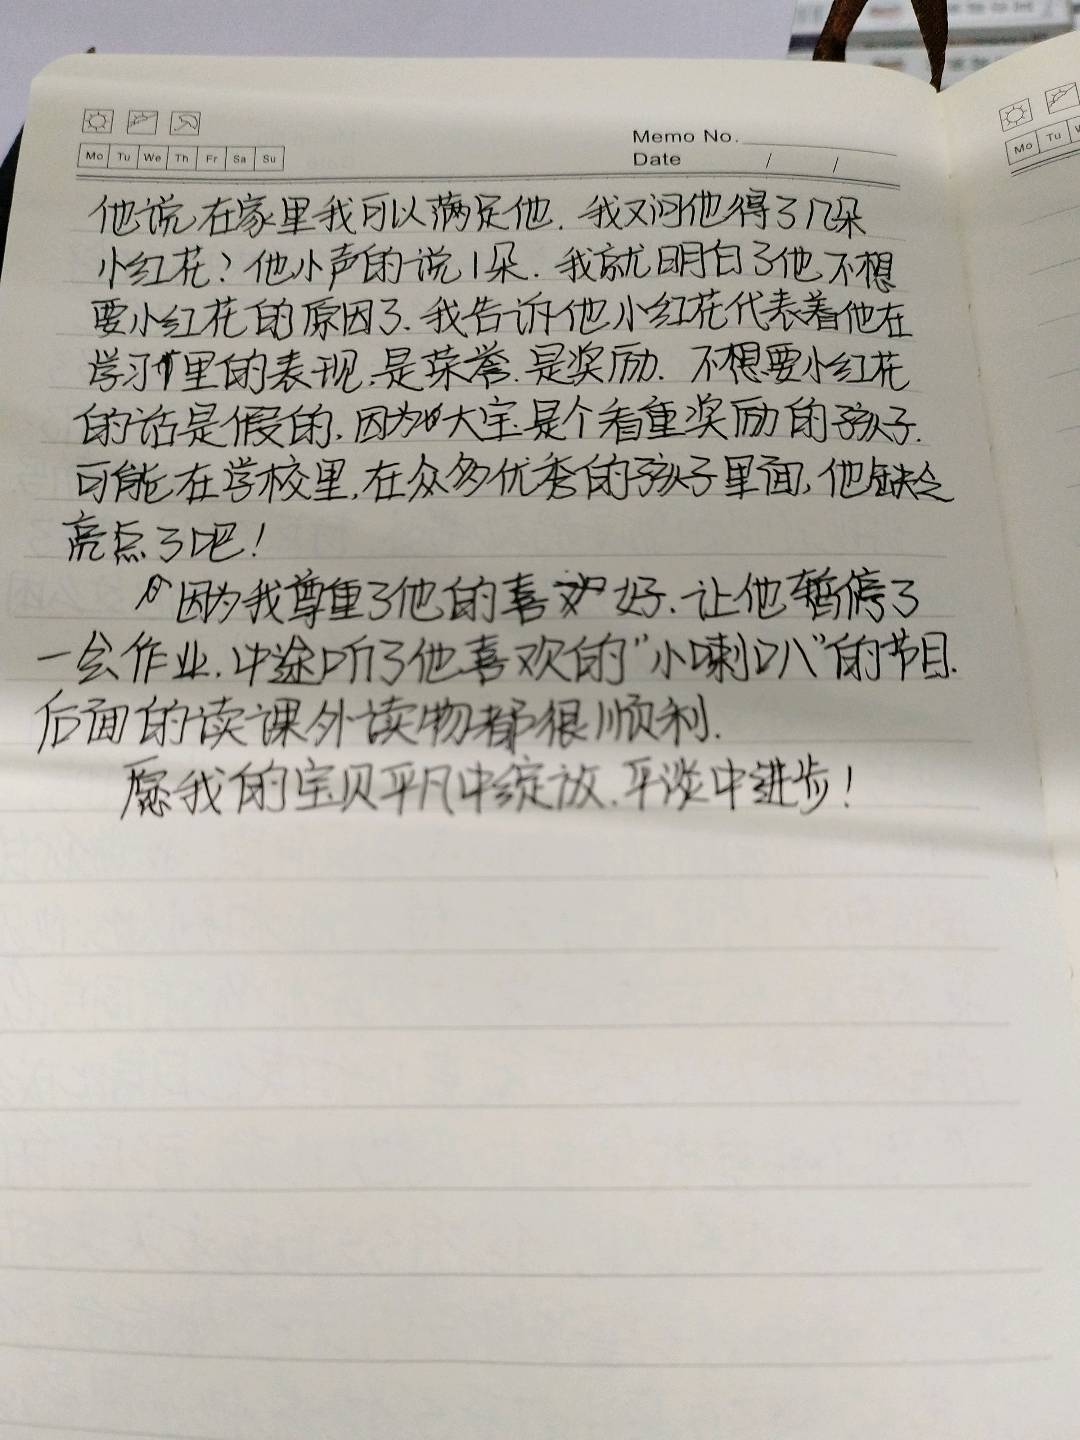 Memo No.
Mo Tu We Th Fr Sa Su
Date / /
Mo Tu
他说在家里我可以满足他.我又问他得了几朵
小红花？他小声的说1朵.我就明白了他不想
要小红花的原因了.我告诉他小红花代表着他在
学习里的表现.是荣誉.是奖励.不想要小红花
的话是假的.因为大宝是个看重奖励的孩子.
可能在学校里,在众多优秀的孩子里面,他缺乏
亮点了吧！
因为我尊重了他的喜好.让他暂停了
一会作业.中途听了他喜欢的"小喇叭"的节目.
后面的读课外读物都很顺利.
愿我的宝贝平凡中绽放.平淡中进步！